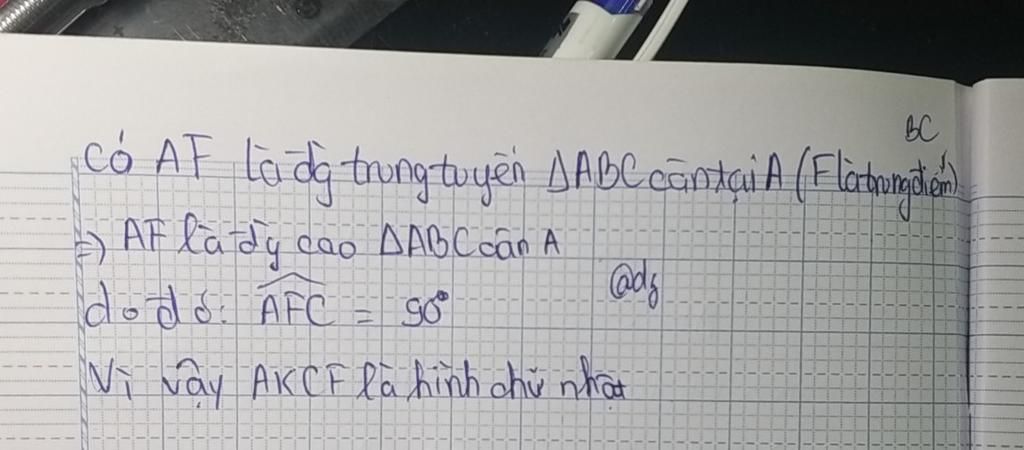 BC
Có AF là đg trung tuyến ΔABC cân tại A (F là trung điểm)
=) AF là đg cao ΔABC cân A
@dz
do đó: AFC = 90°
Vì vậy AKCF là hình chữ nhật